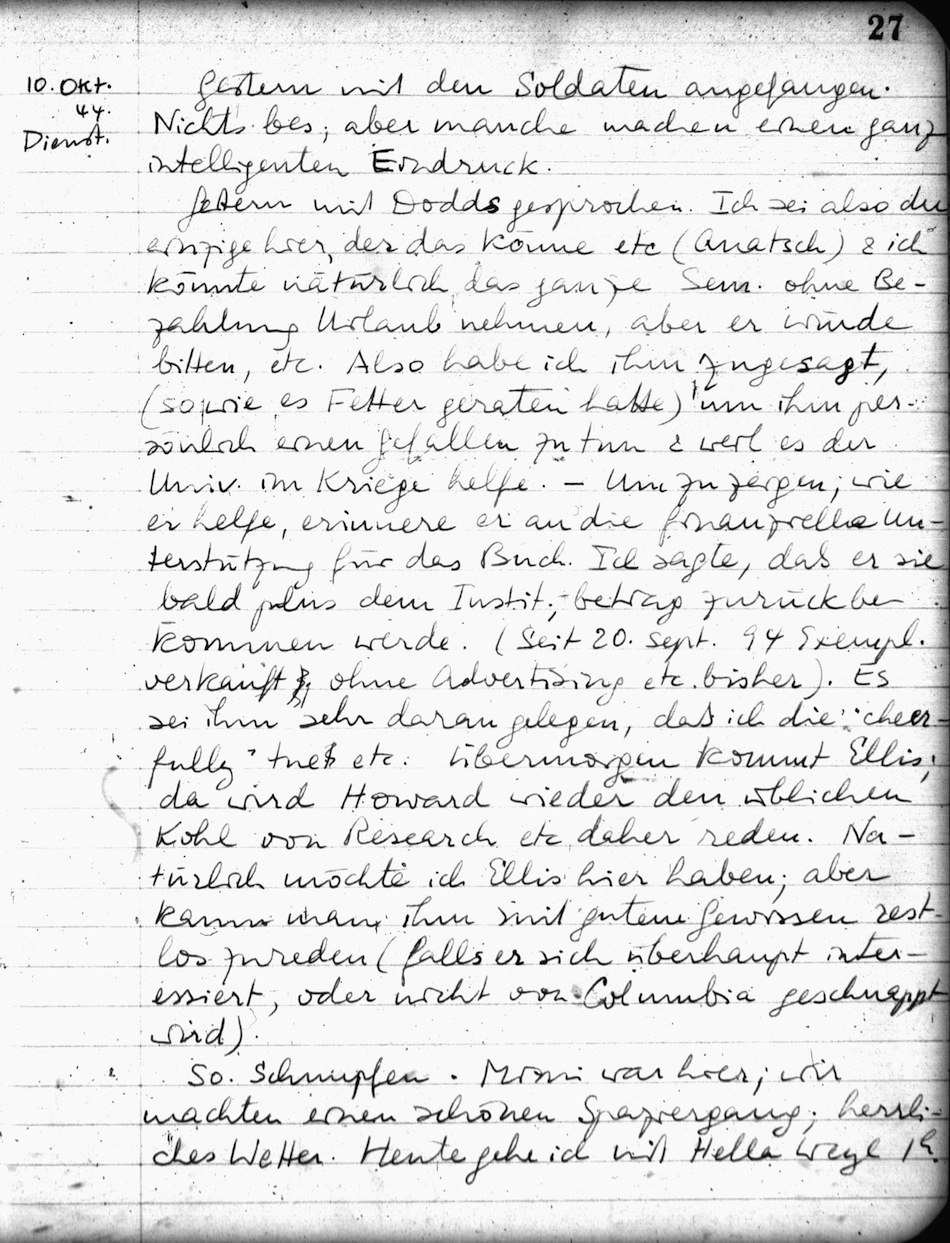 27
10. Okt.
44.
Dienst.
Gestern mit den Soldaten angefangen.
Nichts bes; aber manche machen einen ganz
intelligenten Eindruck.
Gestern mit Dodds gesprochen. Ich sei also der
einzige hier, der das könne etc (Quatsch) & ich
könnte natürlich das ganze Sem. ohne Be-
zahlung Urlaub nehmen, aber er würde
bitten, etc. Also habe ich ihm zugesagt,
(so wie es Fetter geraten hatte) um ihm per-
sönlich einen Gefallen zu tun & weil es der
Univ. im Kriege helfe. – Um zu zeigen, wie
er helfe, erinnere er an die finanzielle Un-
terstützung für das Buch. Ich sagte, daß er sie
bald plus dem Instit.-betrag zurück be
kommen werde. (Seit 20. Sept. 94 Exempl.
verkauft, ohne Advertising etc. bisher). Es
sei ihm sehr daran gelegen, daß ich die "cheer-
fully" tue etc. Übermorgen kommt Ellis;
da wird Howard wieder den üblichen
Kohl von Research etc daher reden. Na-
türlich möchte ich Ellis hier haben; aber
kann man ihm mit gutem Gewissen rest-
los zureden (falls er sich überhaupt inter-
essiert, oder nicht von Columbia geschnappt
wird).
So. Schnupfen. Mimi war hier; wir
machten einen schönen Spaziergang; herrli-
ches Wetter. Heute gehe ich mit Hella Weyl